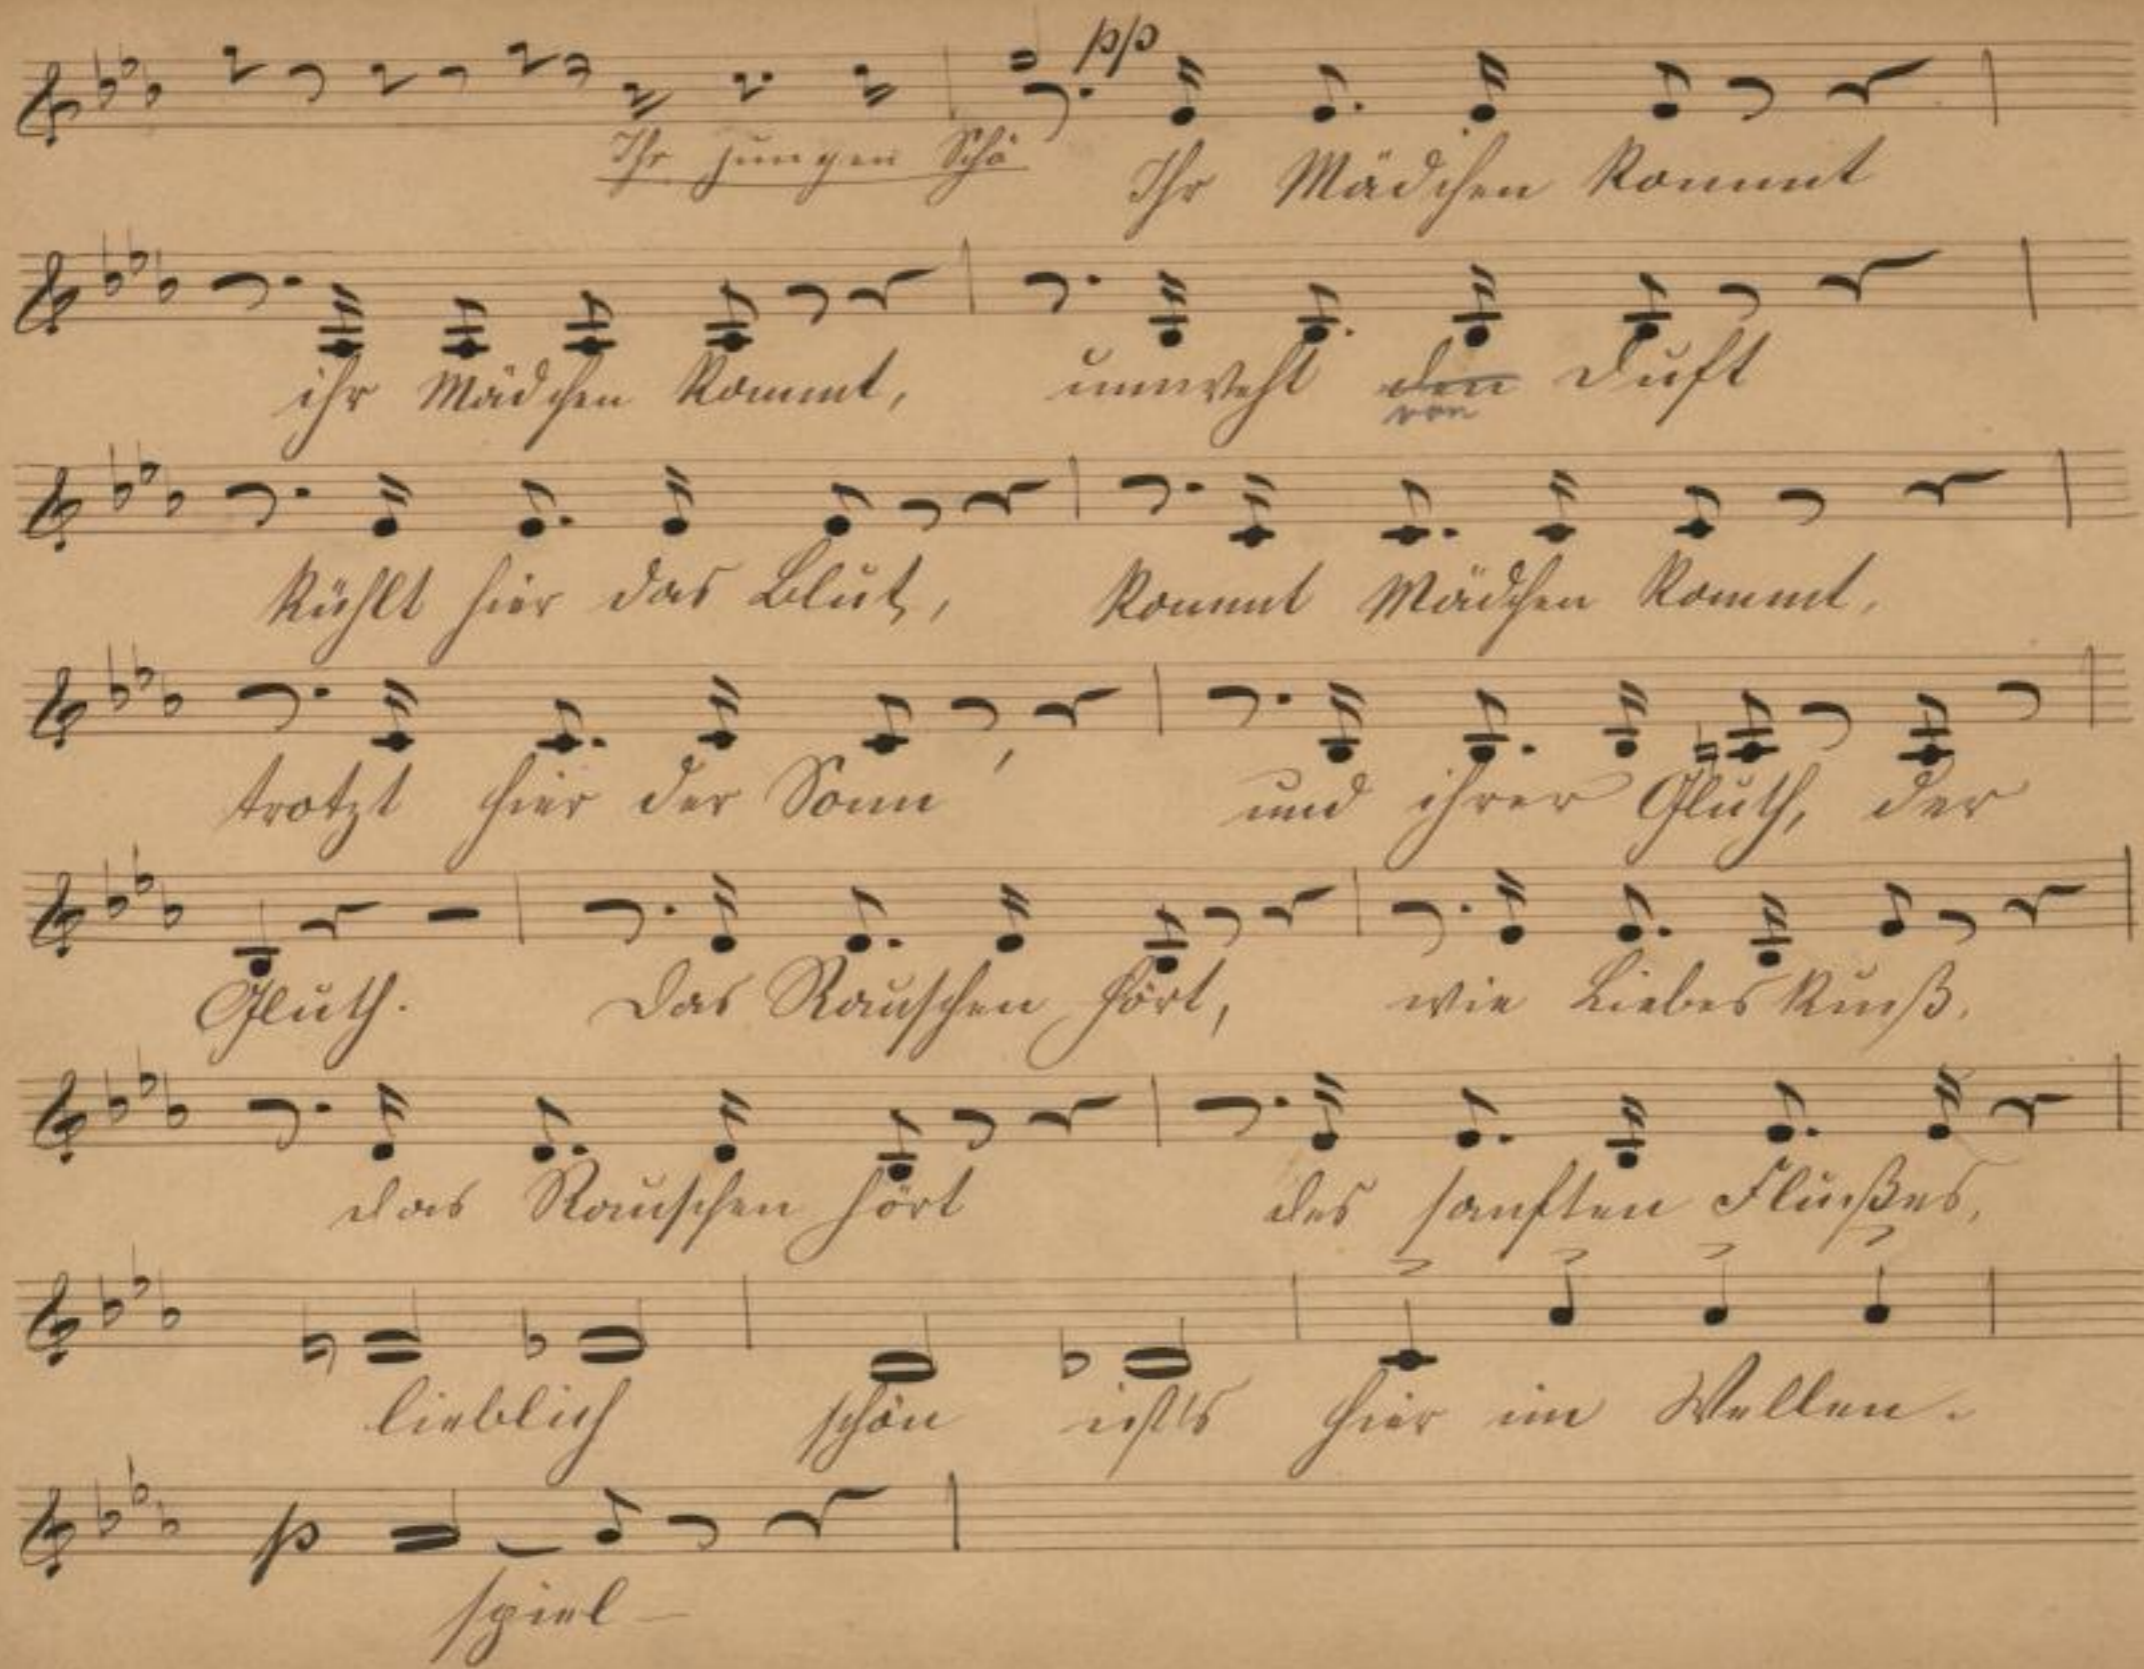 pp
Ihr jungen Schä Ihr Mädchen kommt
ihr Mädchen kommt, umweht den Duft
von
kühlt hier das Blut, kommt Mädchen kommt,
trotzt hier der Sonn, und ihrer Gluth, der
Gluth. Das Rauschen hört, wie Liebes Kuß,
das Rauschen hört des sanften Flußes,
lieblich schön ists hier im Wellen-
p
spiel-